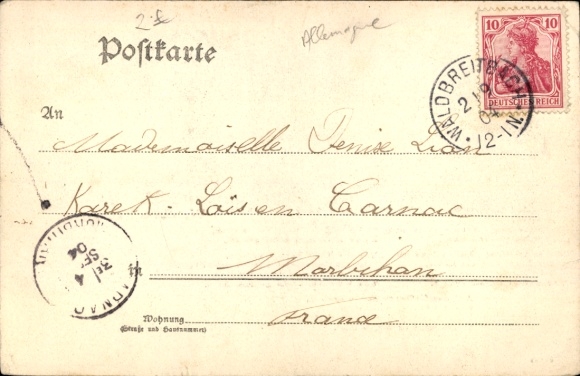 2.-
Allemagne
Postkarte
10
DEUTSCHES REICH
WALDBREITBACH
2 9
04
12-1 N.
An
Mademoiselle Denise Lion
Karek-Loïs en Carnac
in Morbihan
France
Wohnung
(Straße und Hausnummer)
CARNAC
3E/ 4
SEPT
04
MORBIHAN